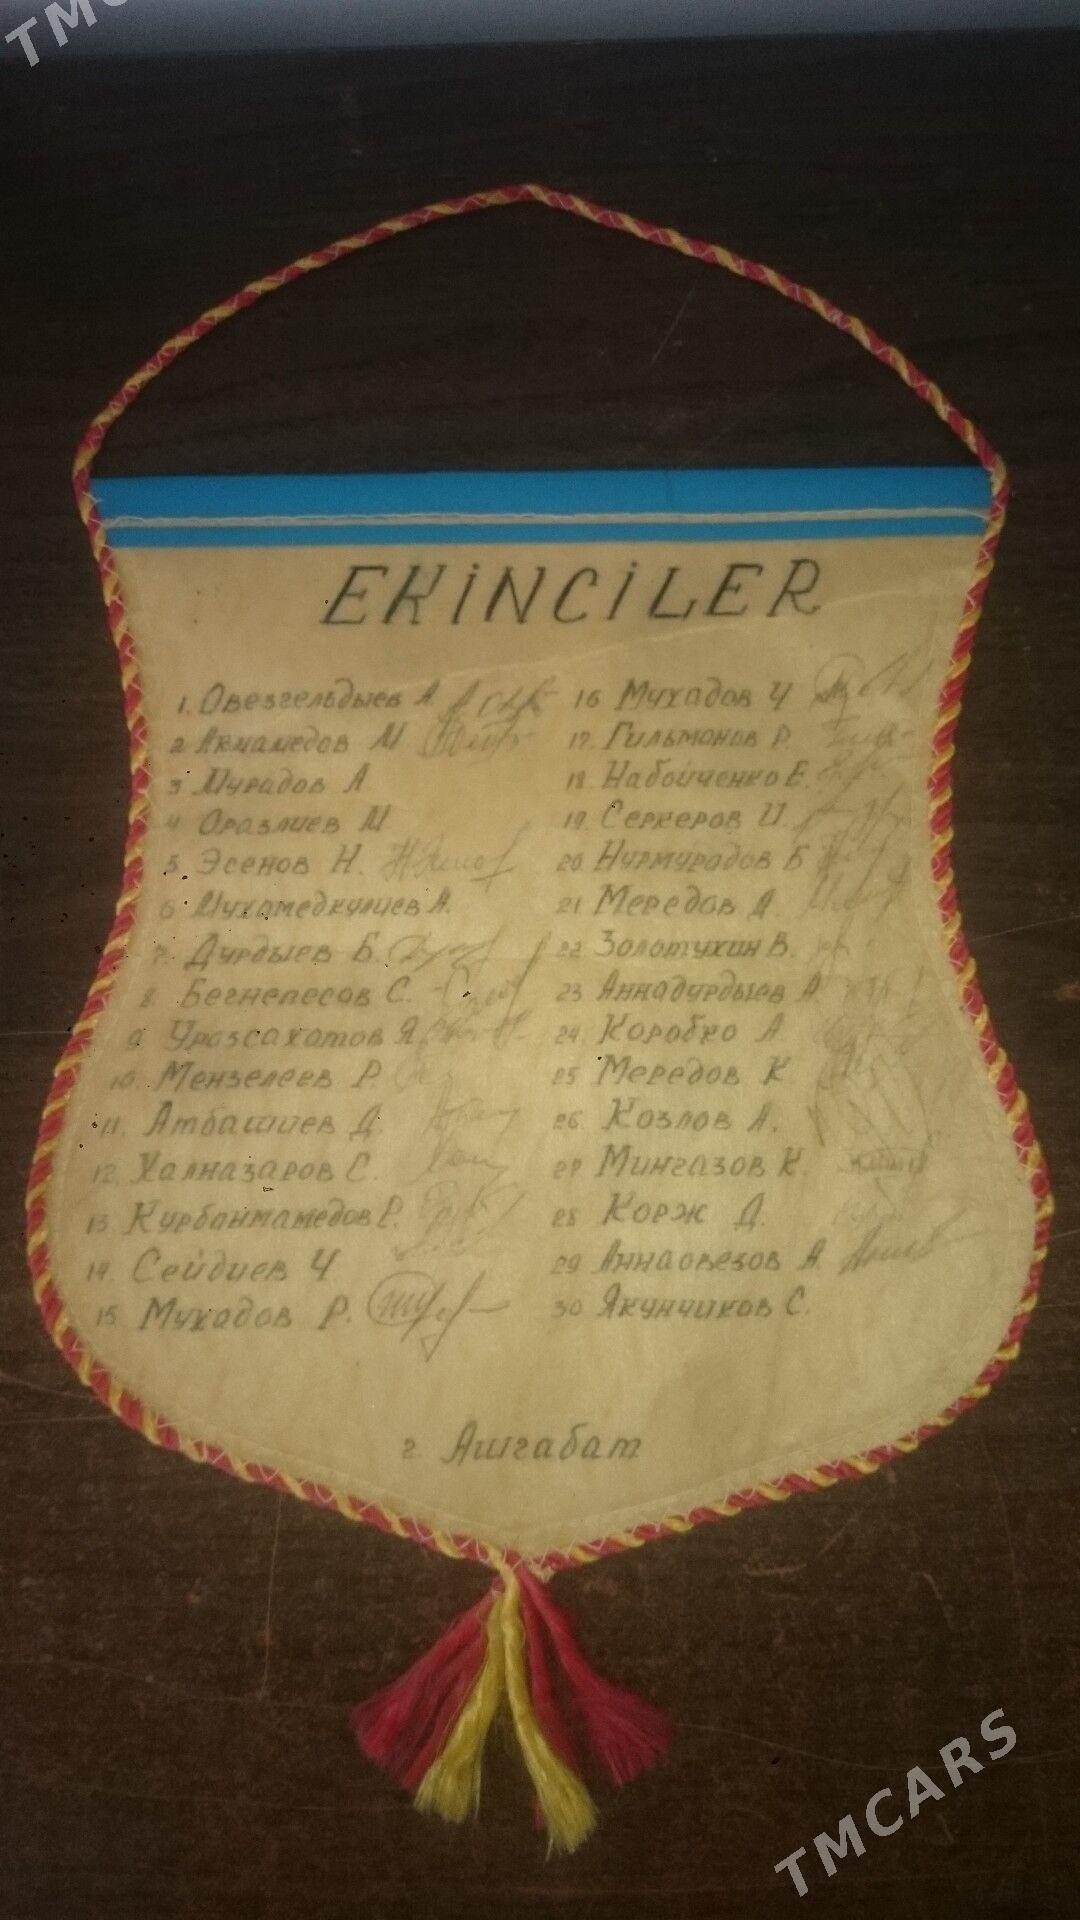 TMC
EKİNCİLER
1. Овезгельдыев А
2 Акмамедов М
3 Мурадов А
4 Оразлиев М
5 Эсенов Н.
6 Мухамедкулиев А.
7. Дурдыев Б.
8 Бегнепесов С.
9 Уразсахатов Я
10. Мензелеев Р
11. Атбашиев Д.
12. Халназаров С.
13 Курбанмамедов Р.
14. Сейдиев Ч
15 Мухадов Р.
16 Мухадов Ч
17. Гильманов Р.
18. Набойченко Е.
19. Серкеров И.
20. Нурмурадов Б
21 Мередов Д
22. Золотухин В.
23 Аннадурдыев А
24 Коробко А
25 Мередов К
26. Козлов А.
27 Мингазов К.
28 Корж Д.
29 Аннаовезов А
30 Якунчиков С.
г. Ашгабат
TMCARS